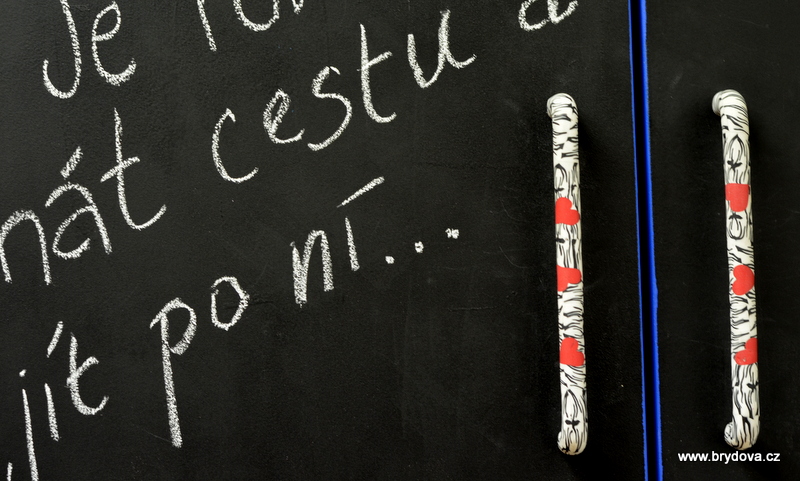 Je
nát cestu a
jít po ní...
www.brydova.cz